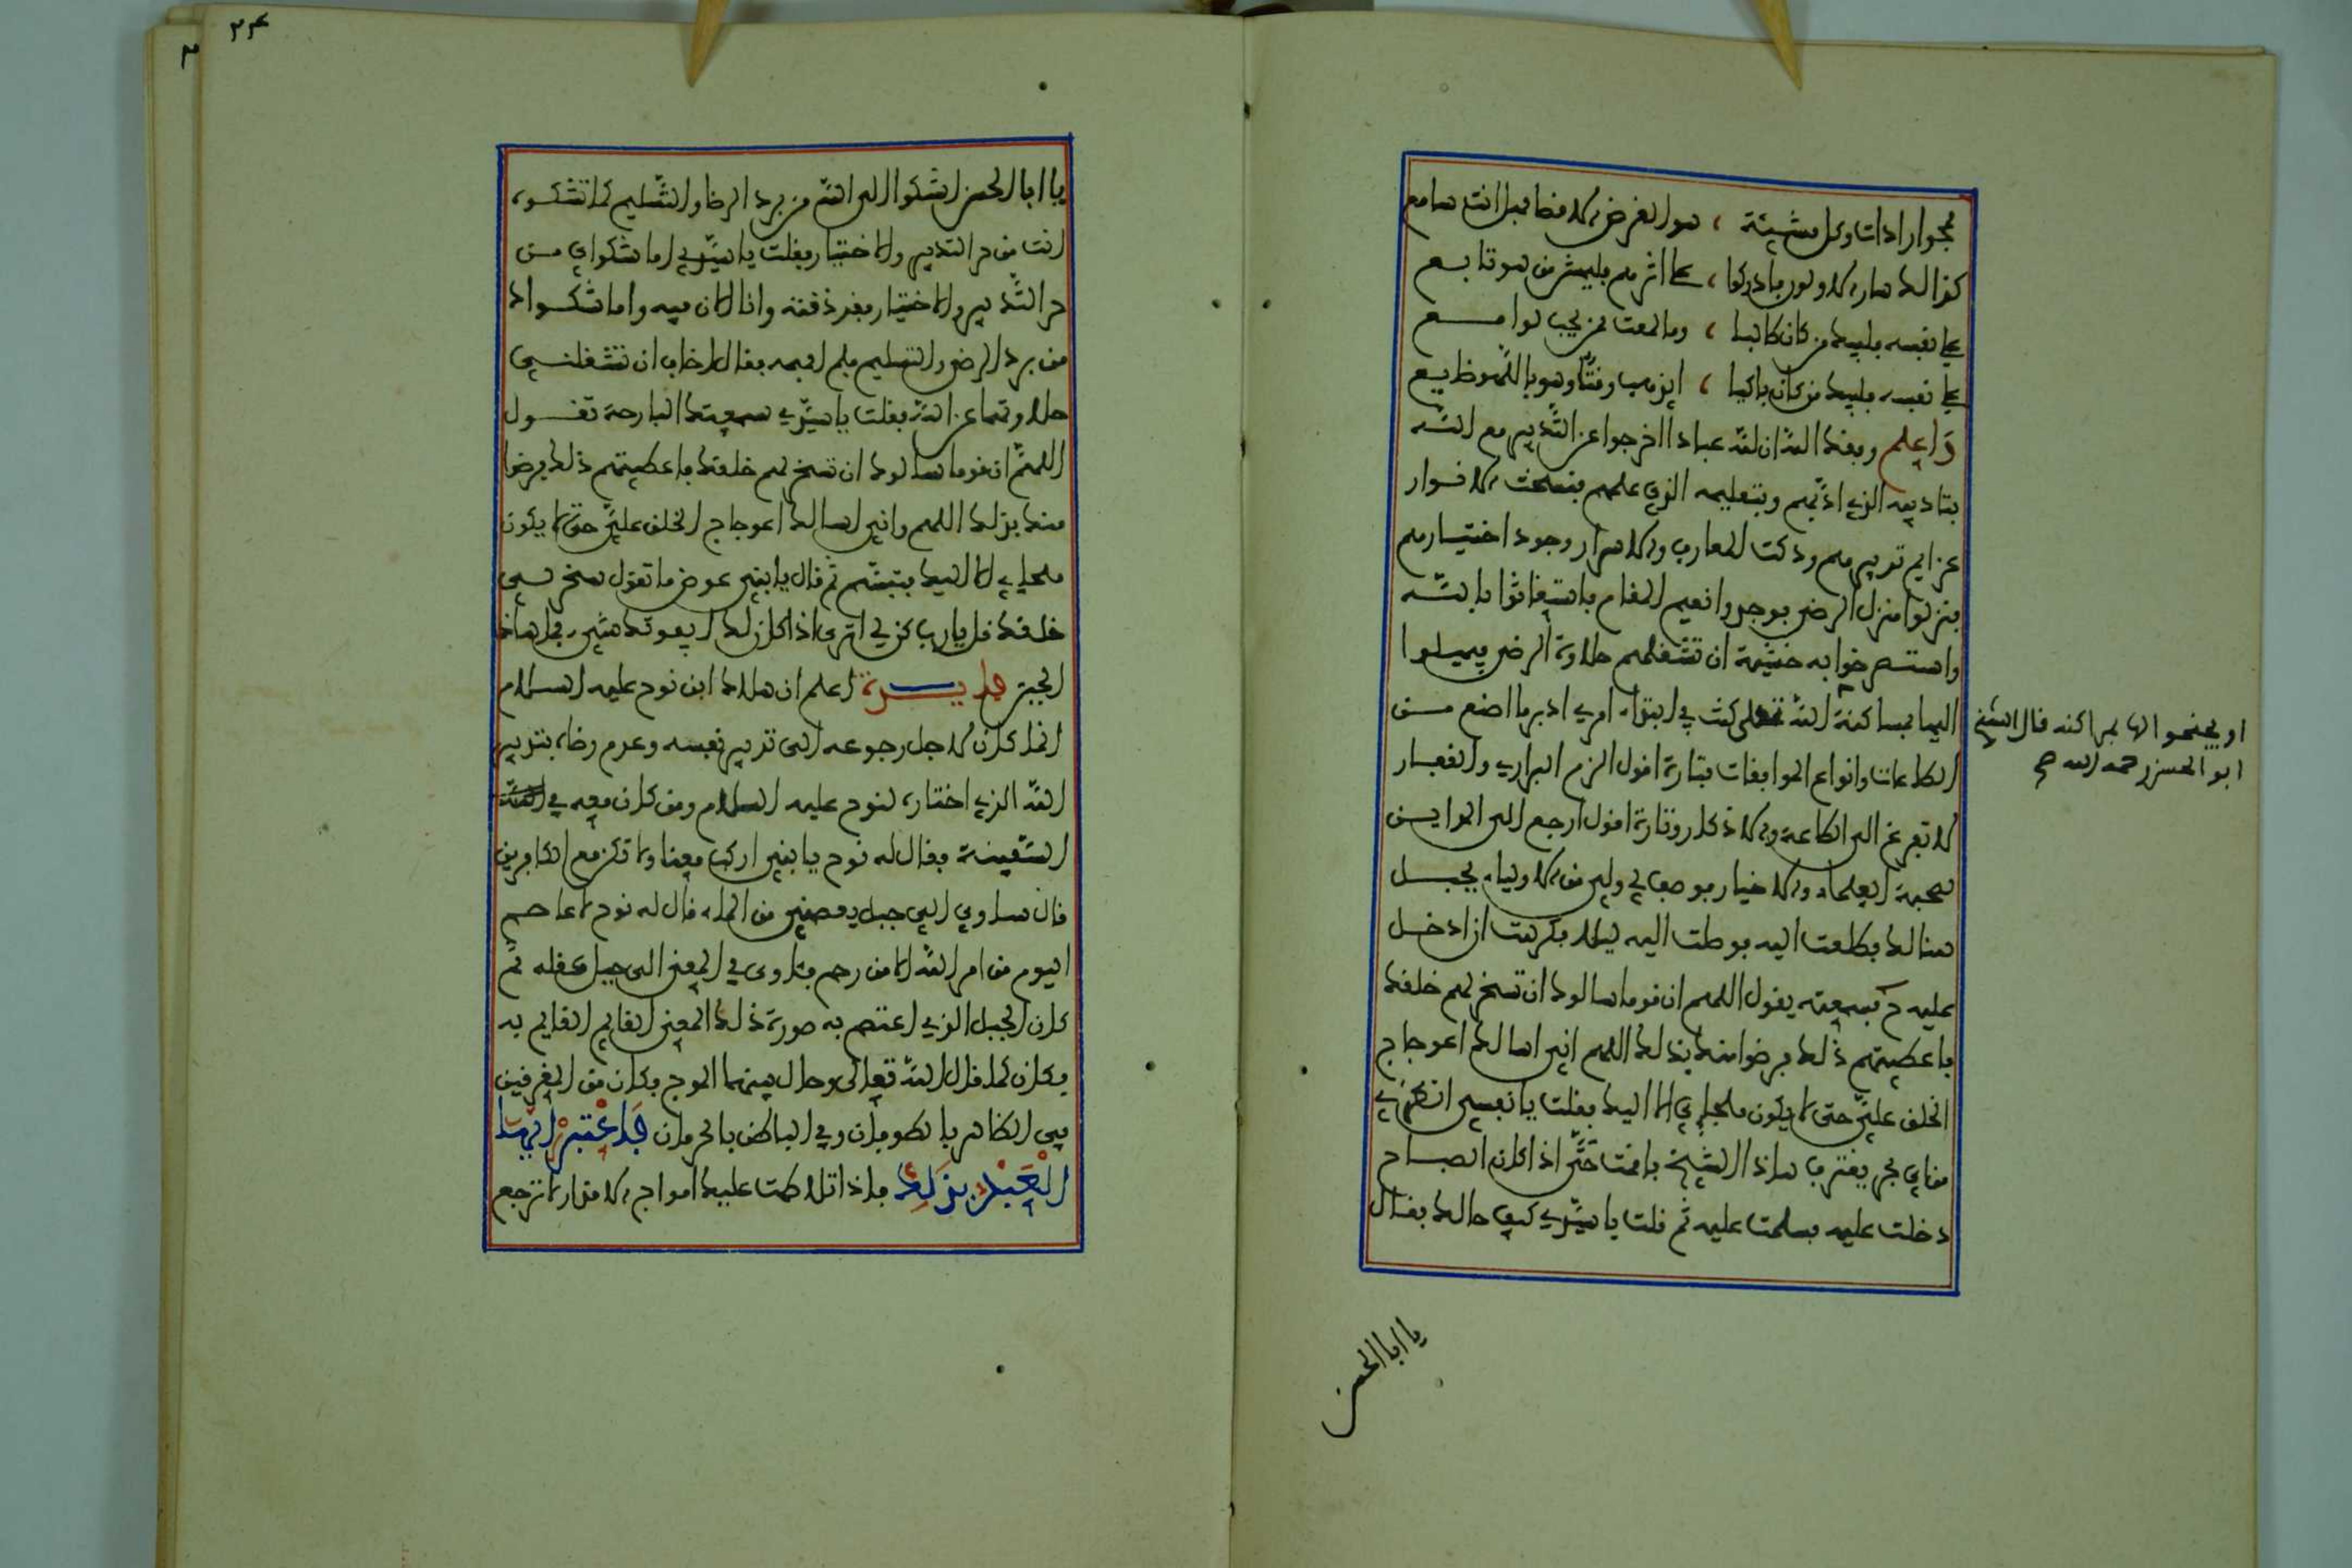 محوا ارادات وكل مشيئة ، هو الغرض الاقصا فهل انت سامع
كذالك سار الاولون فادركوا ، على اثرهم فليمش من هو تابع
على نفسه فليبك من كان طالبا ، وما لمعت ممن يحب لوامع
على نفسه فليبك من كان باكيا ، ايذهب وقتا وهو باللهو ضايع
واعلم وفقك الله ان لله عبادا اخرجوا عن التدبير مع الله
بتاديبه الذي ادبهم وبتعليمه الذي علمهم ففسخت الانوار
عزايم تدبيرهم ودكت المعارف والاسرار وجود اختيارهم
فنزلوا منزل الرضى فوجدوا نعيم المقام فاستغاثوا بالله
واستصرخوا به خشية ان تشغلهم حلاوة الرضى فيميلوا
اليها بمساكنة الله تعلى كنت في ابتداء امري ادبر ما اصنع من
الطاعات وانواع الموافقات فتارة اقول الزم البراري والقفار
لا تفرغ الى الطاعة والاذكار وتارة اقول ارجع الى المداين
لصحبة العلماء والاخيار فوصف لي ولي من الاولياء بجبل
هنالك فطلعت اليه فوصلت اليه ليلا فكرهت ان ادخل
عليه ح فسمعته يقول اللهم ان قوما سالوك ان تسخر لهم خلقك
فاعطيتهم ذلك فرضوا منك بذلك اللهم اني اسالك اعوجاج
الخلق علي حتى لا يكون ملجاي الا اليك فقلت يا نفسي انظري
من اي بحر يغترف هاذا الشيخ فاقمت حتى اذا كان الصباح
دخلت عليه فسلمت عليه ثم قلت يا سيدي كيف حالك فقال
او يجنحوا اليها بمراكنة قال الشيخ
ابو الحسن رحمه الله صح
يا ابا الحسن
٢٤
يا ابا الحسن اشكوا الى الله من برد الرضا والتسليم كما تشكوه
انت من حر التدبير والاختيار فقلت يا سيدي اما شكواي من
حر التدبير والاختيار فقد ذقته وانا الان فيه واما شكواك
من برد الرضى والتسليم فلم افهمه فقال اخاف ان تشغلني
حلاوتهما عن الله فقلت يا سيدي سمعتك البارحة تقول
اللهم ان قوما سالوك ان تسخر لهم خلقك فاعطيتهم ذلك فرضوا
منك بذلك اللهم واني اسالك اعوجاج الخلق علي حتى لا يكون
ملجاي الا اليك فتبسم ثم قال يا بني عوض ما تقول سخر لي
خلقك قل يا رب كن لي اترى اذا كان لك ايفوتك شيء فما هاذا
الجبن فايدة اعلم ان هلاك ابن نوح عليه السلام
انما كان لاجل رجوعه الى تدبير نفسه وعدم رضاه بتدبير
الله الذي اختاره لنوح عليه السلام ومن كان معه في
السفينة فقال له نوح يا بني اركب معنا ولا تكن مع الكافرين
قال ساوي الى جبل يعصمني من الماء قال له نوح لا عاصم
اليوم من امر الله الا من رحم فاوى في المعنى الى جبل عقله ثم
كان الجبل الذي اعتصم به صورة ذلك المعنى القايم به
فكان كما قال الله تعالى وحال بينهما الموج فكان من المغرقين
في الظاهر بالطوفان وفي الباطن بالحرمان فاعتبر ايها
العبد بذلك فاذا تلاطمت عليك امواج الاقدار لا ترجع